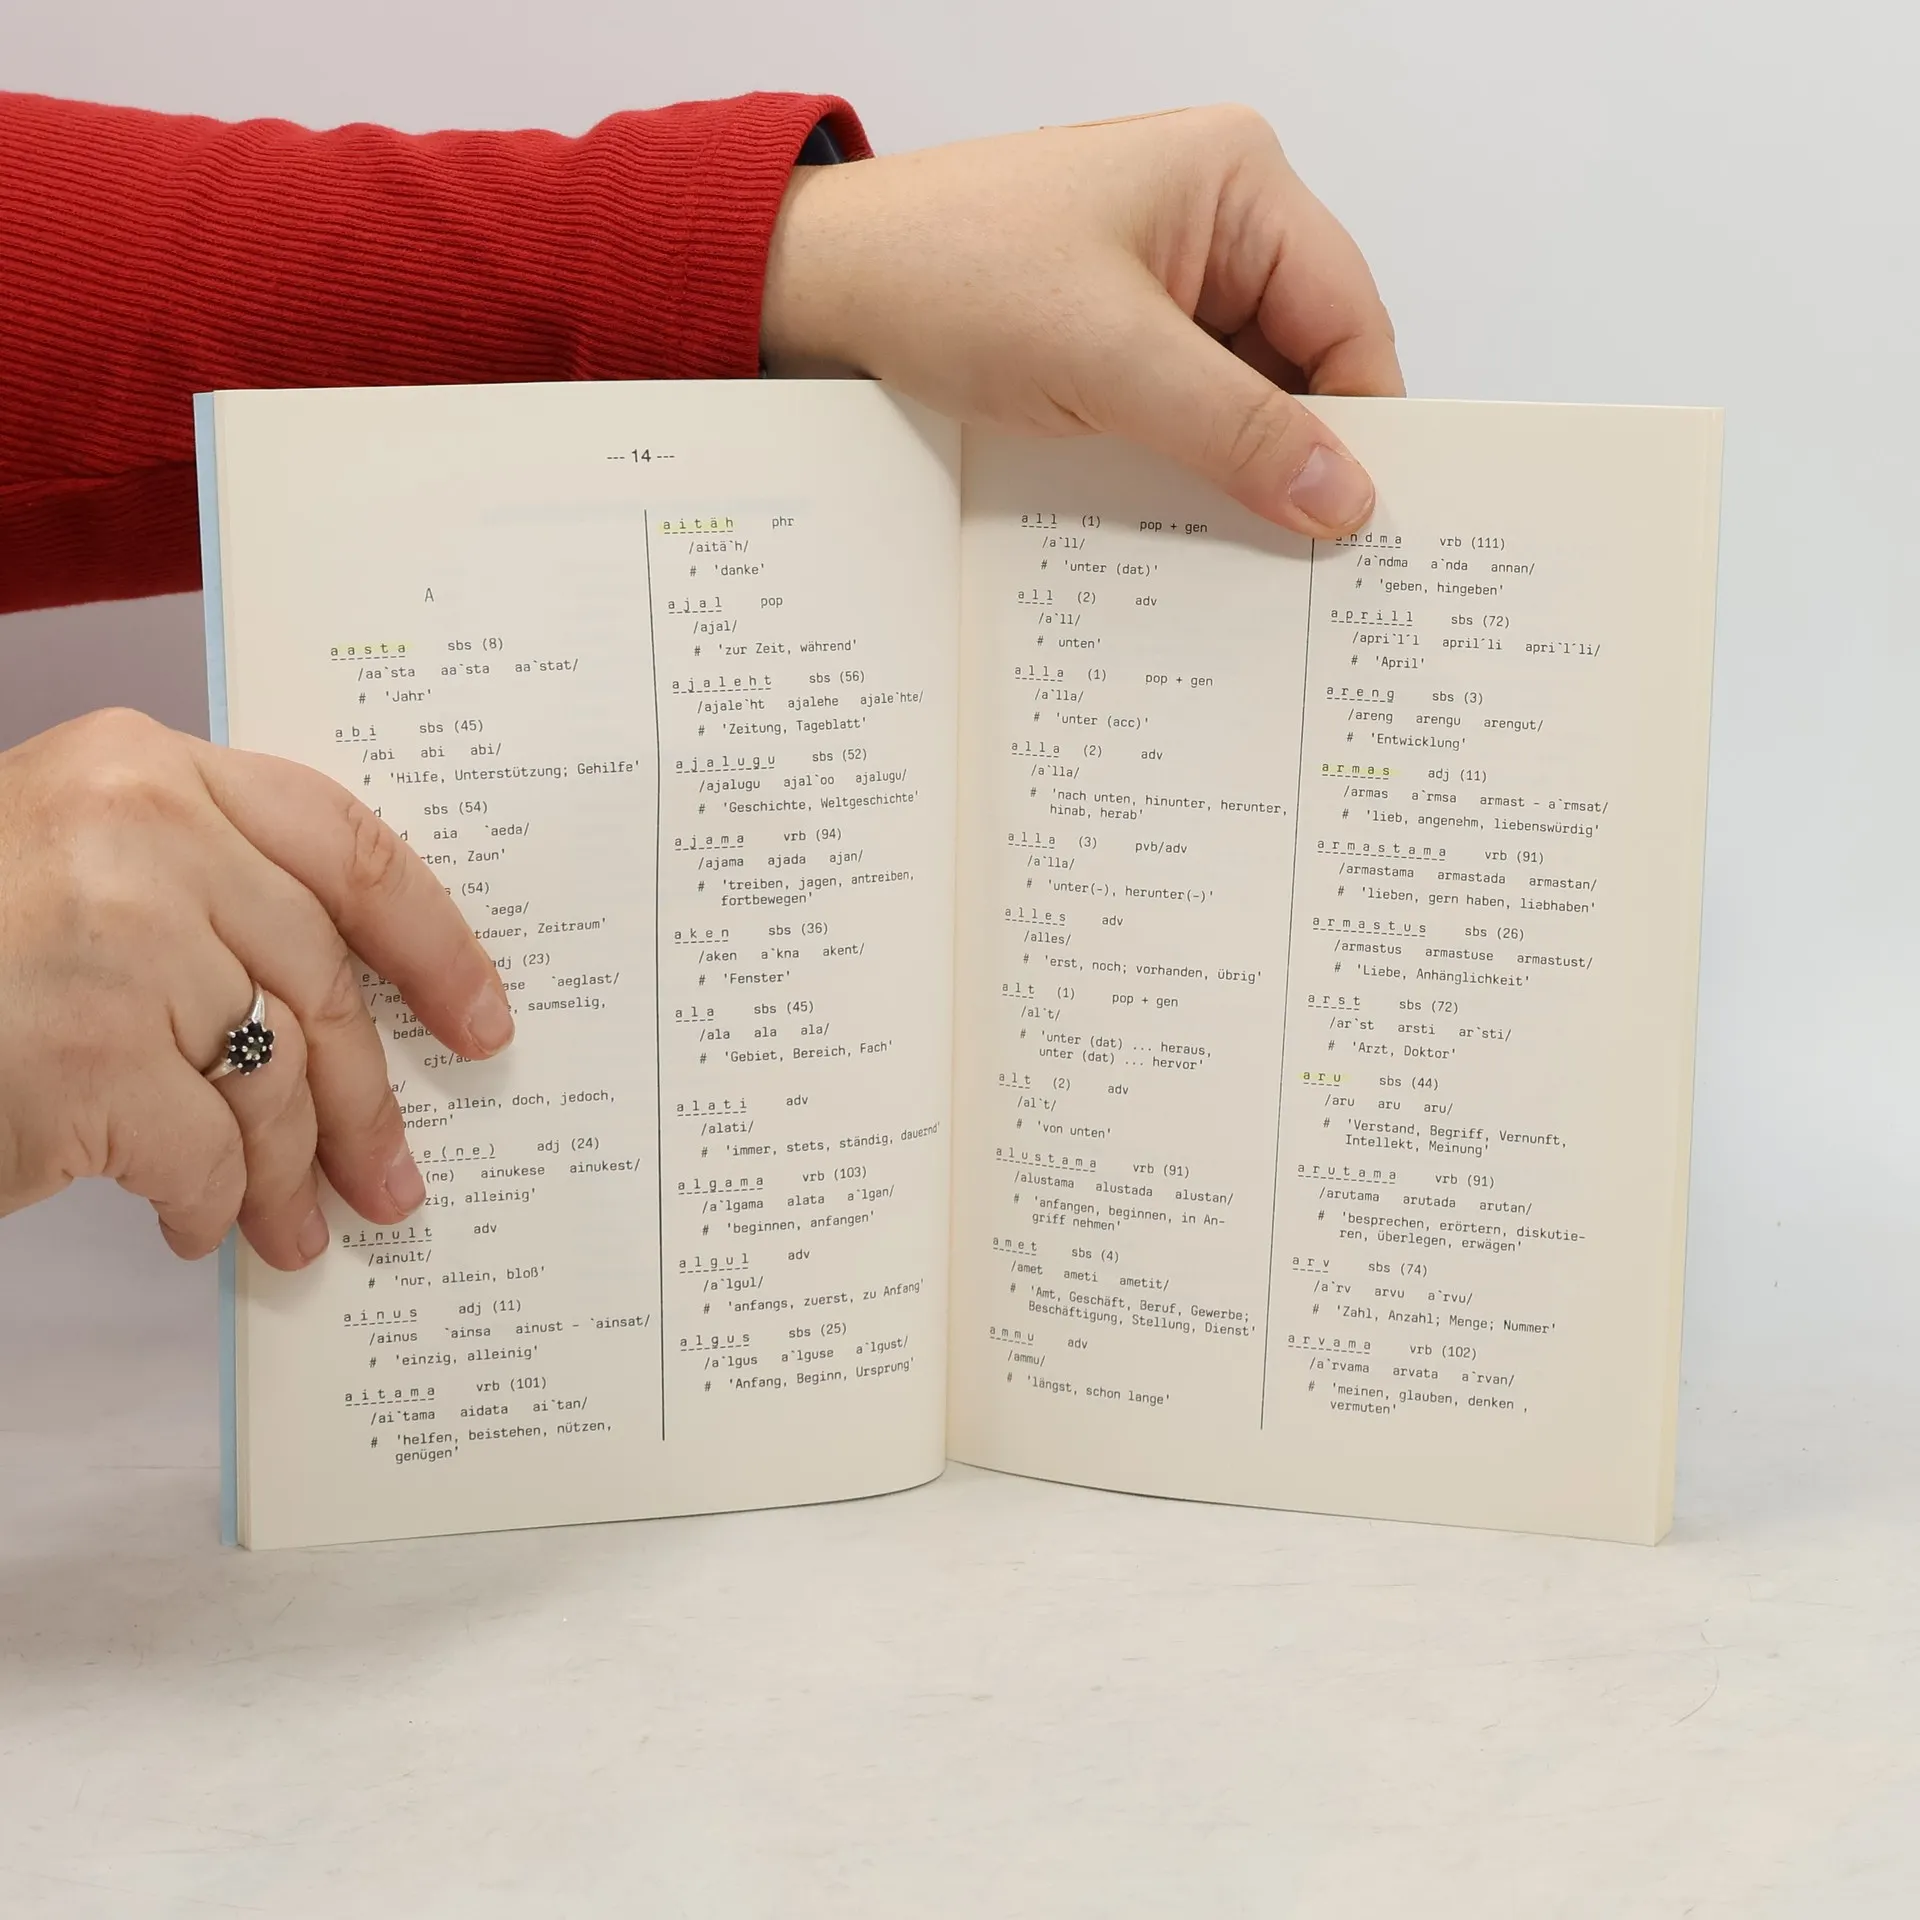 --- 14 ---
A
aasta sbs (8)
/aa`sta aa`sta aa`stat/
# 'Jahr'
abi sbs (45)
/abi abi abi/
# 'Hilfe, Unterstützung; Gehilfe'
sbs (54)
aia `aeda/
Zaun'
(54)
`aega/
Zeitraum'
(23)
`aeglast/
saumselig,
aber, allein, doch, jedoch,
adj (24)
ainukese ainukest/
alleinig'
ainult adv
/ainult/
# 'nur, allein, bloß'
ainus adj (11)
/ainus `ainsa ainust - `ainsat/
# 'einzig, alleinig'
aitama vrb (101)
/ai`tama aidata ai`tan/
# 'helfen, beistehen, nützen,
genügen'
aitäh phr
/aitä`h/
# 'danke'
ajal pop
/ajal/
# 'zur Zeit, während'
ajaleht sbs (56)
/ajale`ht ajalehe ajale`hte/
# 'Zeitung, Tageblatt'
ajalugu sbs (52)
/ajalugu ajal`oo ajalugu/
# 'Geschichte, Weltgeschichte'
ajama vrb (94)
/ajama ajada ajan/
# 'treiben, jagen, antreiben,
fortbewegen'
aken sbs (36)
/aken a`kna akent/
# 'Fenster'
ala sbs (45)
/ala ala ala/
# 'Gebiet, Bereich, Fach'
alati adv
/alati/
# 'immer, stets, ständig, dauernd'
algama vrb (103)
/a`lgama alata a`lgan/
# 'beginnen, anfangen'
algul adv
/a`lgul/
# 'anfangs, zuerst, zu Anfang'
algus sbs (25)
/a`lgus a`lguse a`lgust/
# 'Anfang, Beginn, Ursprung'
all (1) pop + gen
/a`ll/
# 'unter (dat)'
all (2) adv
/a`ll/
# unten'
alla (1) pop + gen
/a`lla/
# 'unter (acc)'
alla (2) adv
/a`lla/
# 'nach unten, hinunter, herunter,
hinab, herab'
alla (3) pvb/adv
/a`lla/
# 'unter(-), herunter(-)'
alles adv
/alles/
# 'erst, noch; vorhanden, übrig'
alt (1) pop + gen
/al`t/
# 'unter (dat) ... heraus,
unter (dat) ... hervor'
alt (2) adv
/al`t/
# 'von unten'
alustama vrb (91)
/alustama alustada alustan/
# 'anfangen, beginnen, in An-
griff nehmen'
amet sbs (4)
/amet ameti ametit/
# 'Amt, Geschäft, Beruf, Gewerbe;
Beschäftigung, Stellung, Dienst'
ammu adv
/ammu/
# 'längst, schon lange'
andma vrb (111)
/a`ndma a`nda annan/
# 'geben, hingeben'
aprill sbs (72)
/apri`l´l april´li apri`l´li/
# 'April'
areng sbs (3)
/areng arengu arengut/
# 'Entwicklung'
armas adj (11)
/armas a`rmsa armast - a`rmsat/
# 'lieb, angenehm, liebenswürdig'
armastama vrb (91)
/armastama armastada armastan/
# 'lieben, gern haben, liabhaben'
armastus sbs (26)
/armastus armastuse armastust/
# 'Liebe, Anhänglichkeit'
arst sbs (72)
/ar`st arsti ar`sti/
# 'Arzt, Doktor'
aru sbs (44)
/aru aru aru/
# 'Verstand, Begriff, Vernunft,
Intellekt, Meinung'
arutama vrb (91)
/arutama arutada arutan/
# 'besprechen, erörtern, diskutie-
ren, überlegen, erwägen'
arv sbs (74)
/a`rv arvu a`rvu/
# 'Zahl, Anzahl; Menge; Nummer'
arvama vrb (102)
/a`rvama arvata a`rvan/
# 'meinen, glauben, denken ,
vermuten'